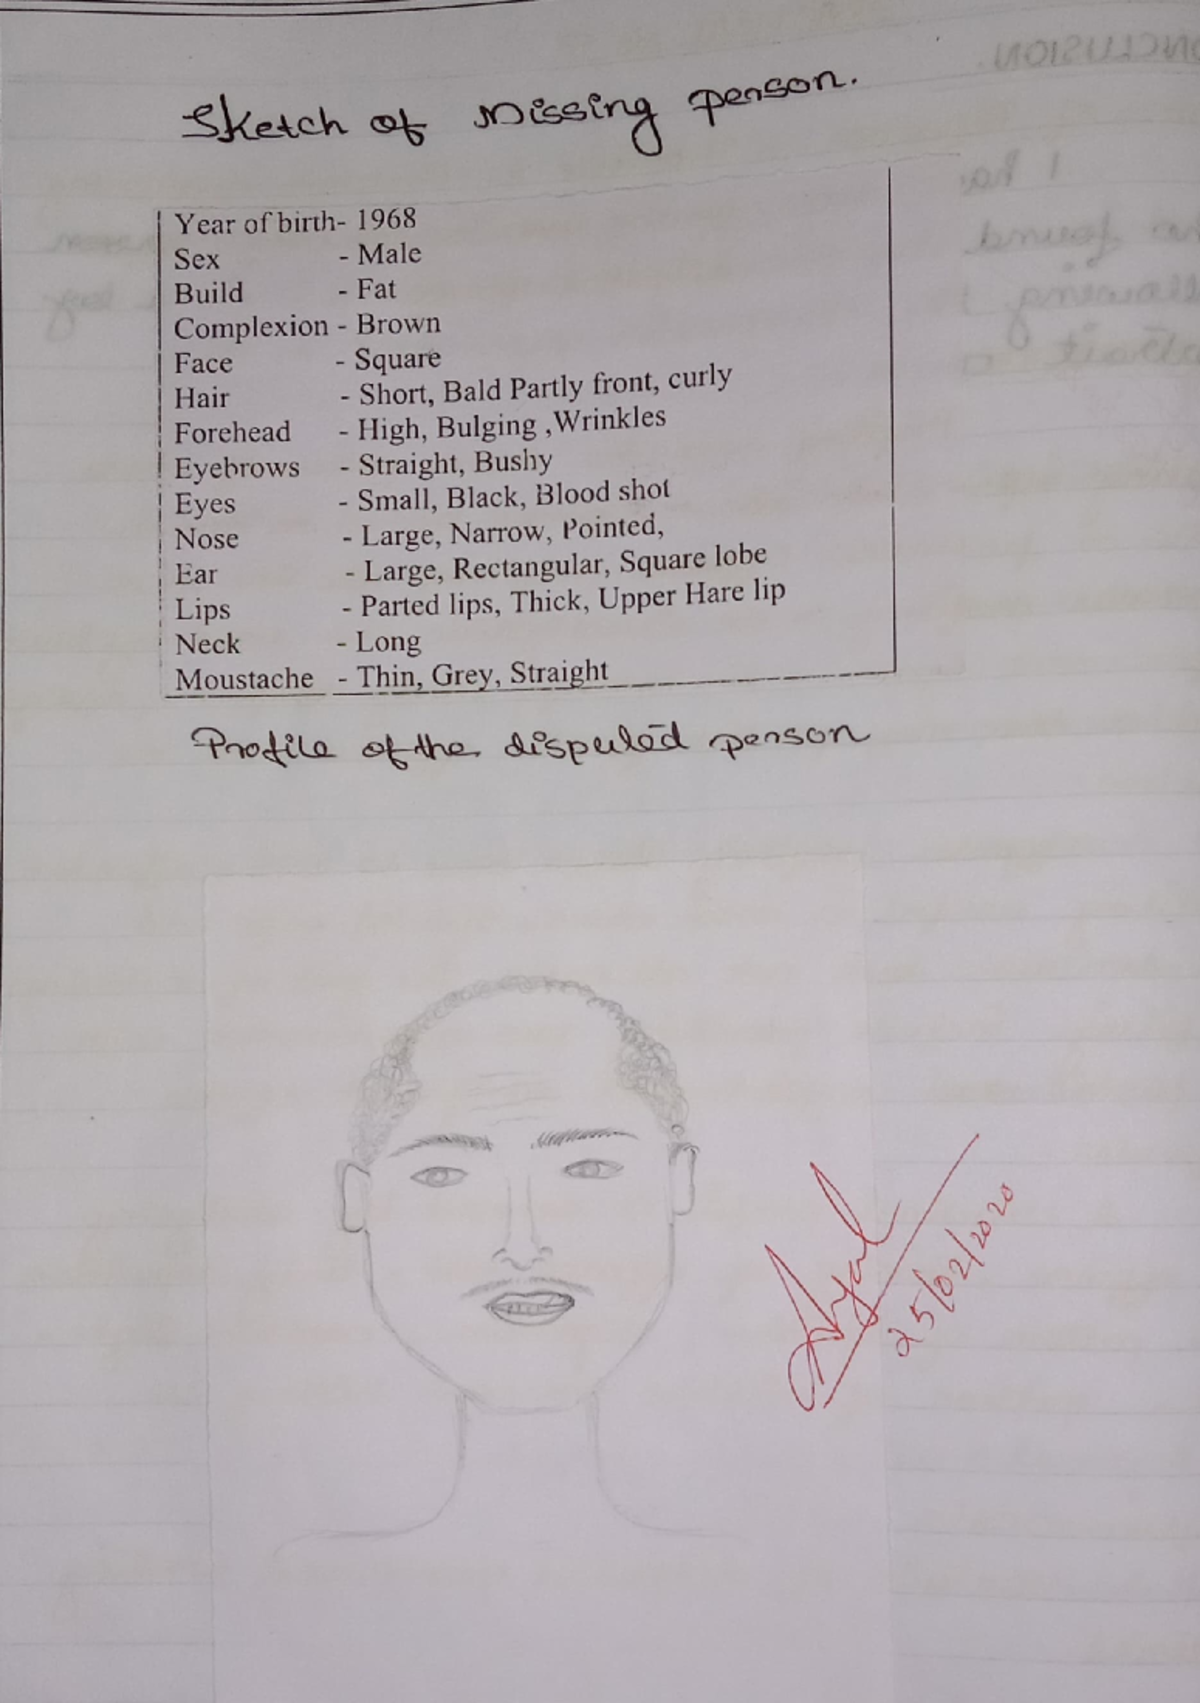 Sketch of Missing person.
Year of birth- 1968
Sex - Male
Build - Fat
Complexion - Brown
Face - Square
Hair - Short, Bald Partly front, curly
Forehead - High, Bulging ,Wrinkles
Eyebrows - Straight, Bushy
Eyes - Small, Black, Blood shot
Nose - Large, Narrow, Pointed,
Ear - Large, Rectangular, Square lobe
Lips - Parted lips, Thick, Upper Hare lip
Neck - Long
Moustache - Thin, Grey, Straight
Profile of the disputed person
25/02/2020